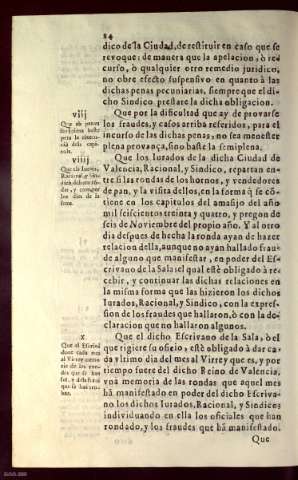 84
dico de la Ciudad, de restituir en caso que se
revoque: de manera que la apelacion, ò re-
curso, ò qualquier otro remedio juridico,
no obre efecto suspensivo en quanto à las
dichas penas pecuniarias, siempre que el di-
cho Sindico prestare la dicha obligacion.
viij
Que por la dificultad que ay de provarse
los fraudes, y casos arriba referidos, para el
incurso de las dichas penas, no sea menester
plena provança, sino baste la semiplena.
viiij
Que los Iurados de la dicha Ciudad de
Valencia, Racional, y Sindico, repartan en-
tre si las rondas de los hornos, y vendedores
de pan, y la visita dellos, en la forma q̃ se cõ-
tiene en los capitulos del amasijo del año
mil seiscientos treinta y quatro, y pregon de
seis de Noviembre del propio año. Y al otro
dia despues de hecha la ronda ayan de hazer
relacion della, aunque no ayan hallado frau-
de alguno que manifestar, en poder del Es-
crivano de la Sala, el qual estè obligado à re-
cebir, y continuar las dichas relaciones en
la misma forma que las hizieron los dichos
Iurados, Racional, y Sindico, con la expres-
sion de los fraudes que hallaron, ò con la de-
claracion que no hallaron algunos.
x
Que el dicho Escrivano de la Sala, ò el
que rigiere su oficio, estè obligado à dar ca-
da vltimo dia del mes al Virrey que es, y por
tiempo fuere del dicho Reino de Valencia,
vna memoria de las rondas que aquel mes
hã manifestado en poder del dicho Escriva-
no los dichos Iurados, Racional, y Sindico,
individuando en ella los oficiales que han
rondado, y los fraudes que hã manifestado.
Que